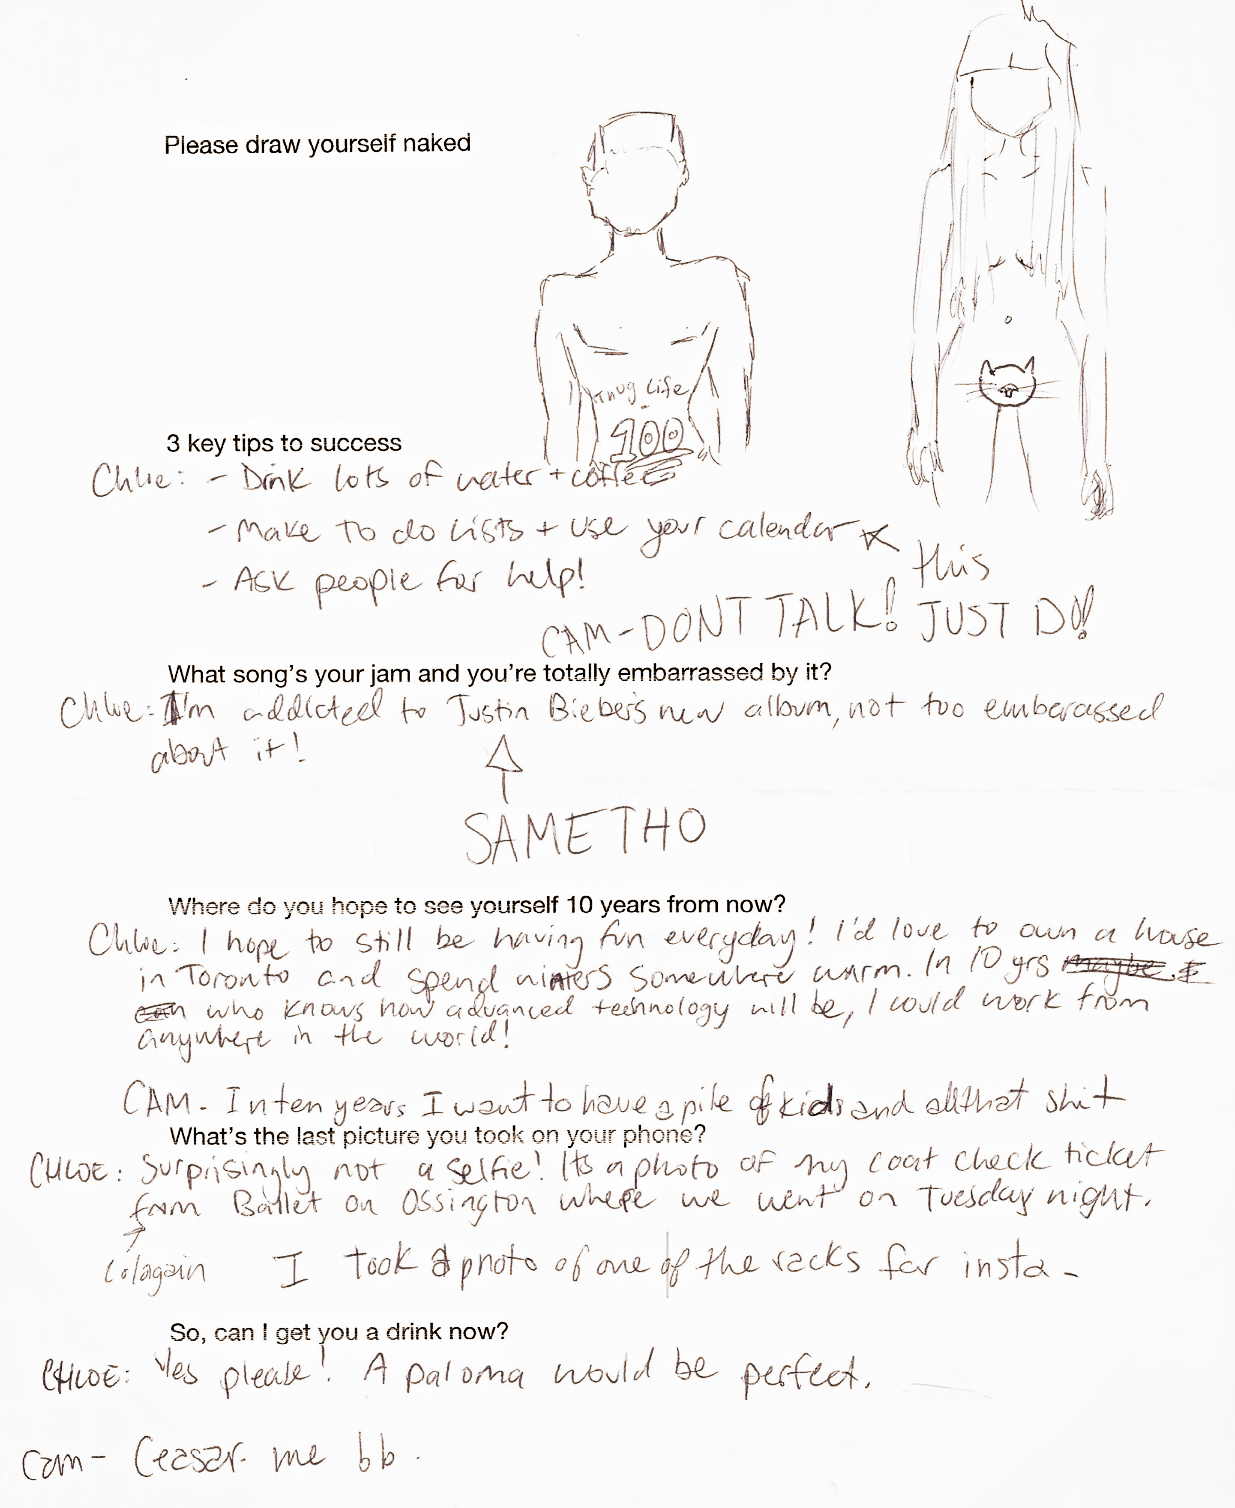 Please draw yourself naked
Thug Life
100
3 key tips to success
Chloe: - Drink lots of water + coffee
- Make to do lists + use your calendar
- Ask people for help!
this
CAM - DONT TALK! JUST DO!
What song's your jam and you're totally embarrassed by it?
Chloe: I'm addicted to Justin Biebers new album, not too emberassed
about it!
SAME THO
Where do you hope to see yourself 10 years from now?
Chloe: I hope to still be having fun everyday! I'd love to own a house
in Toronto and spend winters somewhere warm. In 10 yrs maybe I
can who knows how advanced technology will be, I could work from
anywhere in the world!
CAM - In ten years I want to have a pile of kids and all that shit
What's the last picture you took on your phone?
CHLOE: Surprisingly not a selfie! Its a photo of my coat check ticket
from Ballet on Ossington where we went on Tuesday night.
lol again I took a photo of one of the racks for insta -
So, can I get you a drink now?
CHLOE: Yes please! A paloma would be perfect.
Cam - Ceasar me bb.